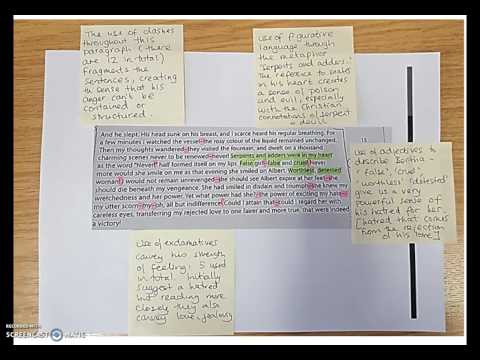 The use of dashes
throughout this
paragraph (there
are 12 in total)
fragments the
sentences, creating
the sense that his
anger can't be
contained or
structured.
use of figurative
language through
the metaphor
'serpents and adders'.
The reference to snakes
in his heart creates
a sense of poison
and evil, especially
with the Christian
connotations of serpent
devil
And he slept. His head sunk on his breast, and I scarce heard his regular breathing. For
a few minutes I watched the vessel—the rosy colour of the liquid remained unchanged.
Then my thoughts wandered—they visited the fountain, and dwelt on a thousand
charming scenes never to be renewed—never! Serpents and adders were in my heart
as the word "Never!" half formed itself on my lips. False girl!—false and cruel! Never
more would she smile on me as that evening she smiled on Albert. Worthless, detested
woman! I would not remain unrevenged—she should see Albert expire at her feet—she
should die beneath my vengeance. She had smiled in disdain and triumph—she knew my
wretchedness and her power. Yet what power had she?—the power of exciting my hate—
my utter scorn—my—oh, all but indifference! Could I attain that—could I regard her with
careless eyes, transferring my rejected love to one fairer and more true, that were indeed
a victory!
use of adjectives to
describe Bertha -
'false', 'cruel',
'worthless' 'detested'
give us a very
powerful sense of
his hatred for her
[hatred that comes
from the rejection
of his love]
Use of exclamatives
convey his strength
of feeling. 5 used
in total. Initially
suggest a hatred
but reading more
closely they also
convey love, jealousy
RECORDED WITH
SCREENCAST MATIC